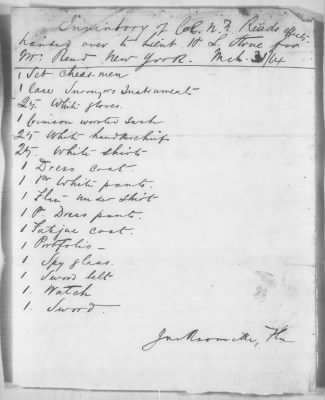 Inventory of Col. N. Reads effects
handed over to Lieut H L Stone for
Mr. Read New York. Mch 3/64
1 Set chess-men
1 Case Surveyors Instruments
2 White gloves.
1 Crimson worsted Sash
2 White handkerchiefs
2 White Shirts
1 Dress coat
1 Pr White pants.
1 Fln under Shirt
1 P. Dress pants.
1 Fatigue coat.
1 Portfolio —
1 Spy glass.
1 Sword belt
1. Watch
1. Sword.
Jacksonville, Fla